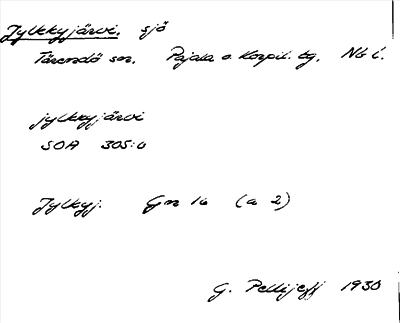 Jylkkyjärvi, sjö
Tärendö sn. Pajala o. Korpil. tg. Nb l.
jylkkyjärvi
SOA 305:6
Jylkyj. Gn 16 (a 2)
G. Pellijeff 1930